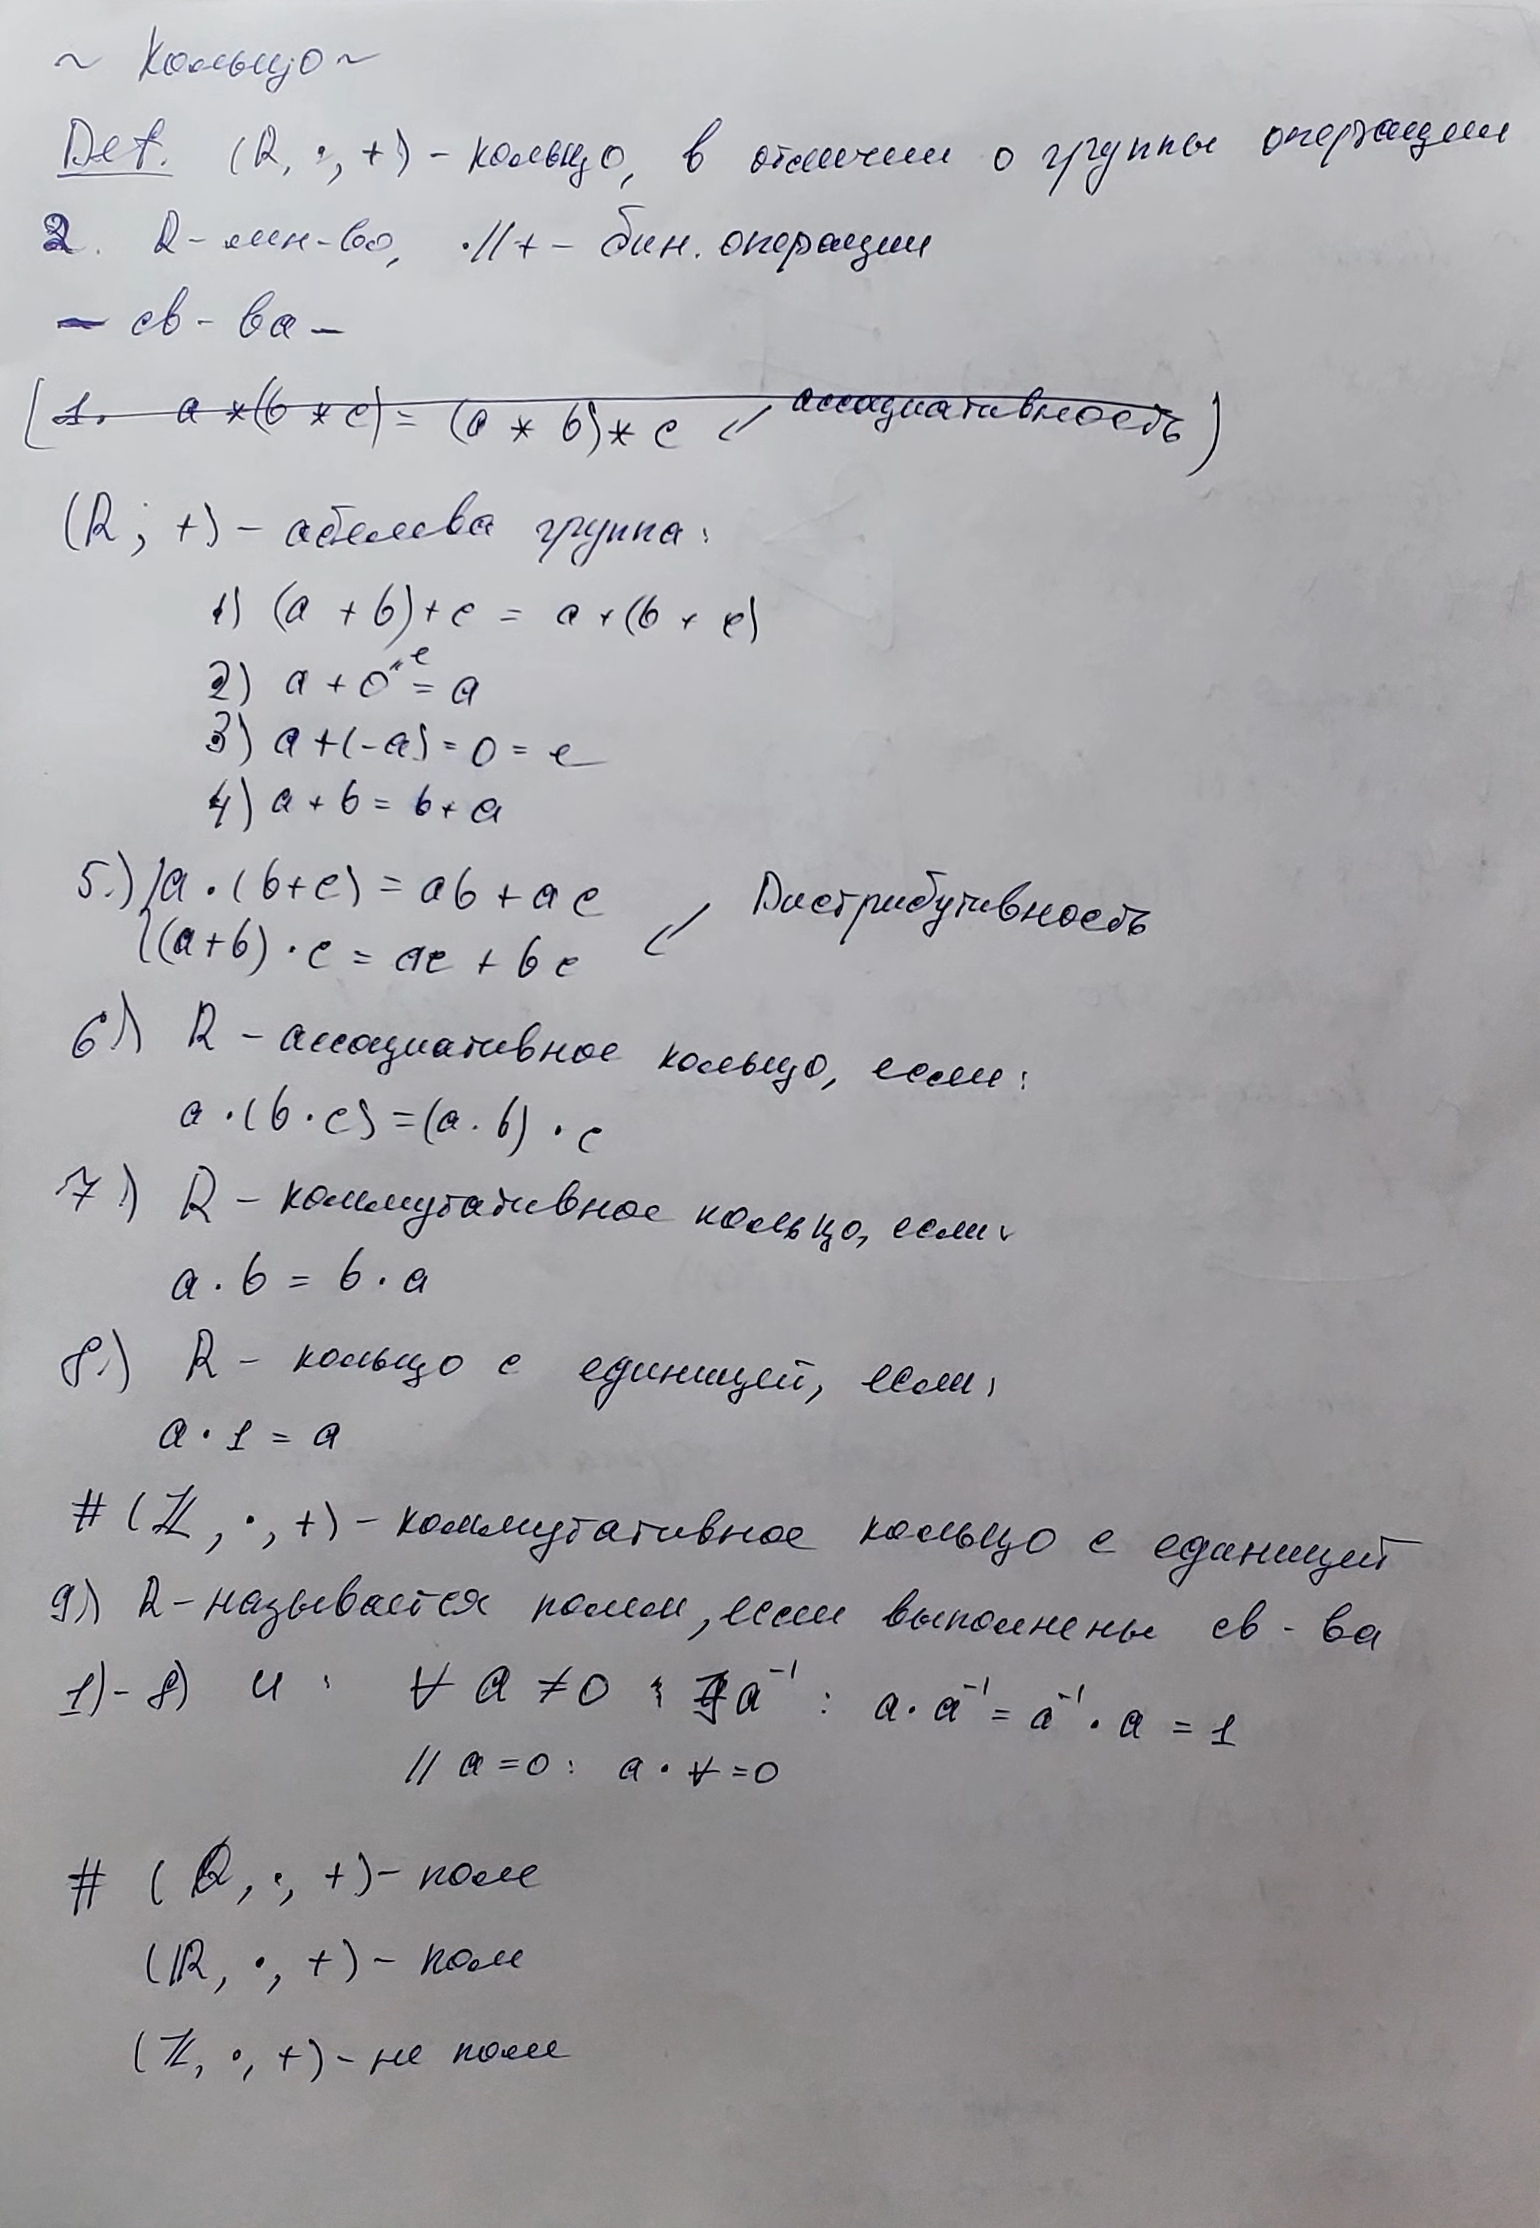 ~ Кольцо ~
Def. (R, ·, +) - кольцо, в отличии о группы операции
2. R - мн-во, ·//+ - бин. операции
- св-ва -
[1. a * (b * c) = (a * b) * c ↙ ассоциативность)
(R; +) - абелева группа:
1) (a + b) + c = a + (b + c)
2) a + 0 "e = a
3) a + (-a) = 0 = e
4) a + b = b + a
5.) {a · (b + c) = ab + ac
{(a + b) · c = ac + bc ↙ Дистрибутивность
6.) R - ассоциативное кольцо, если:
a · (b · c) = (a · b) · c
7.) R - коммутативное кольцо, если:
a · b = b · a
8.) R - кольцо с единицей, если:
a · 1 = a
# (ℤ, ·, +) - коммутативное кольцо с единицей
9.) R - называется полем, если выполнены св-ва
1) - 8) и : ∀ a ≠ 0 : ∃ a⁻¹ : a · a⁻¹ = a⁻¹ · a = 1
// a = 0 : a · ∀ = 0
# (ℚ, ·, +) - поле
(ℝ, ·, +) - поле
(ℤ, ·, +) - не поле